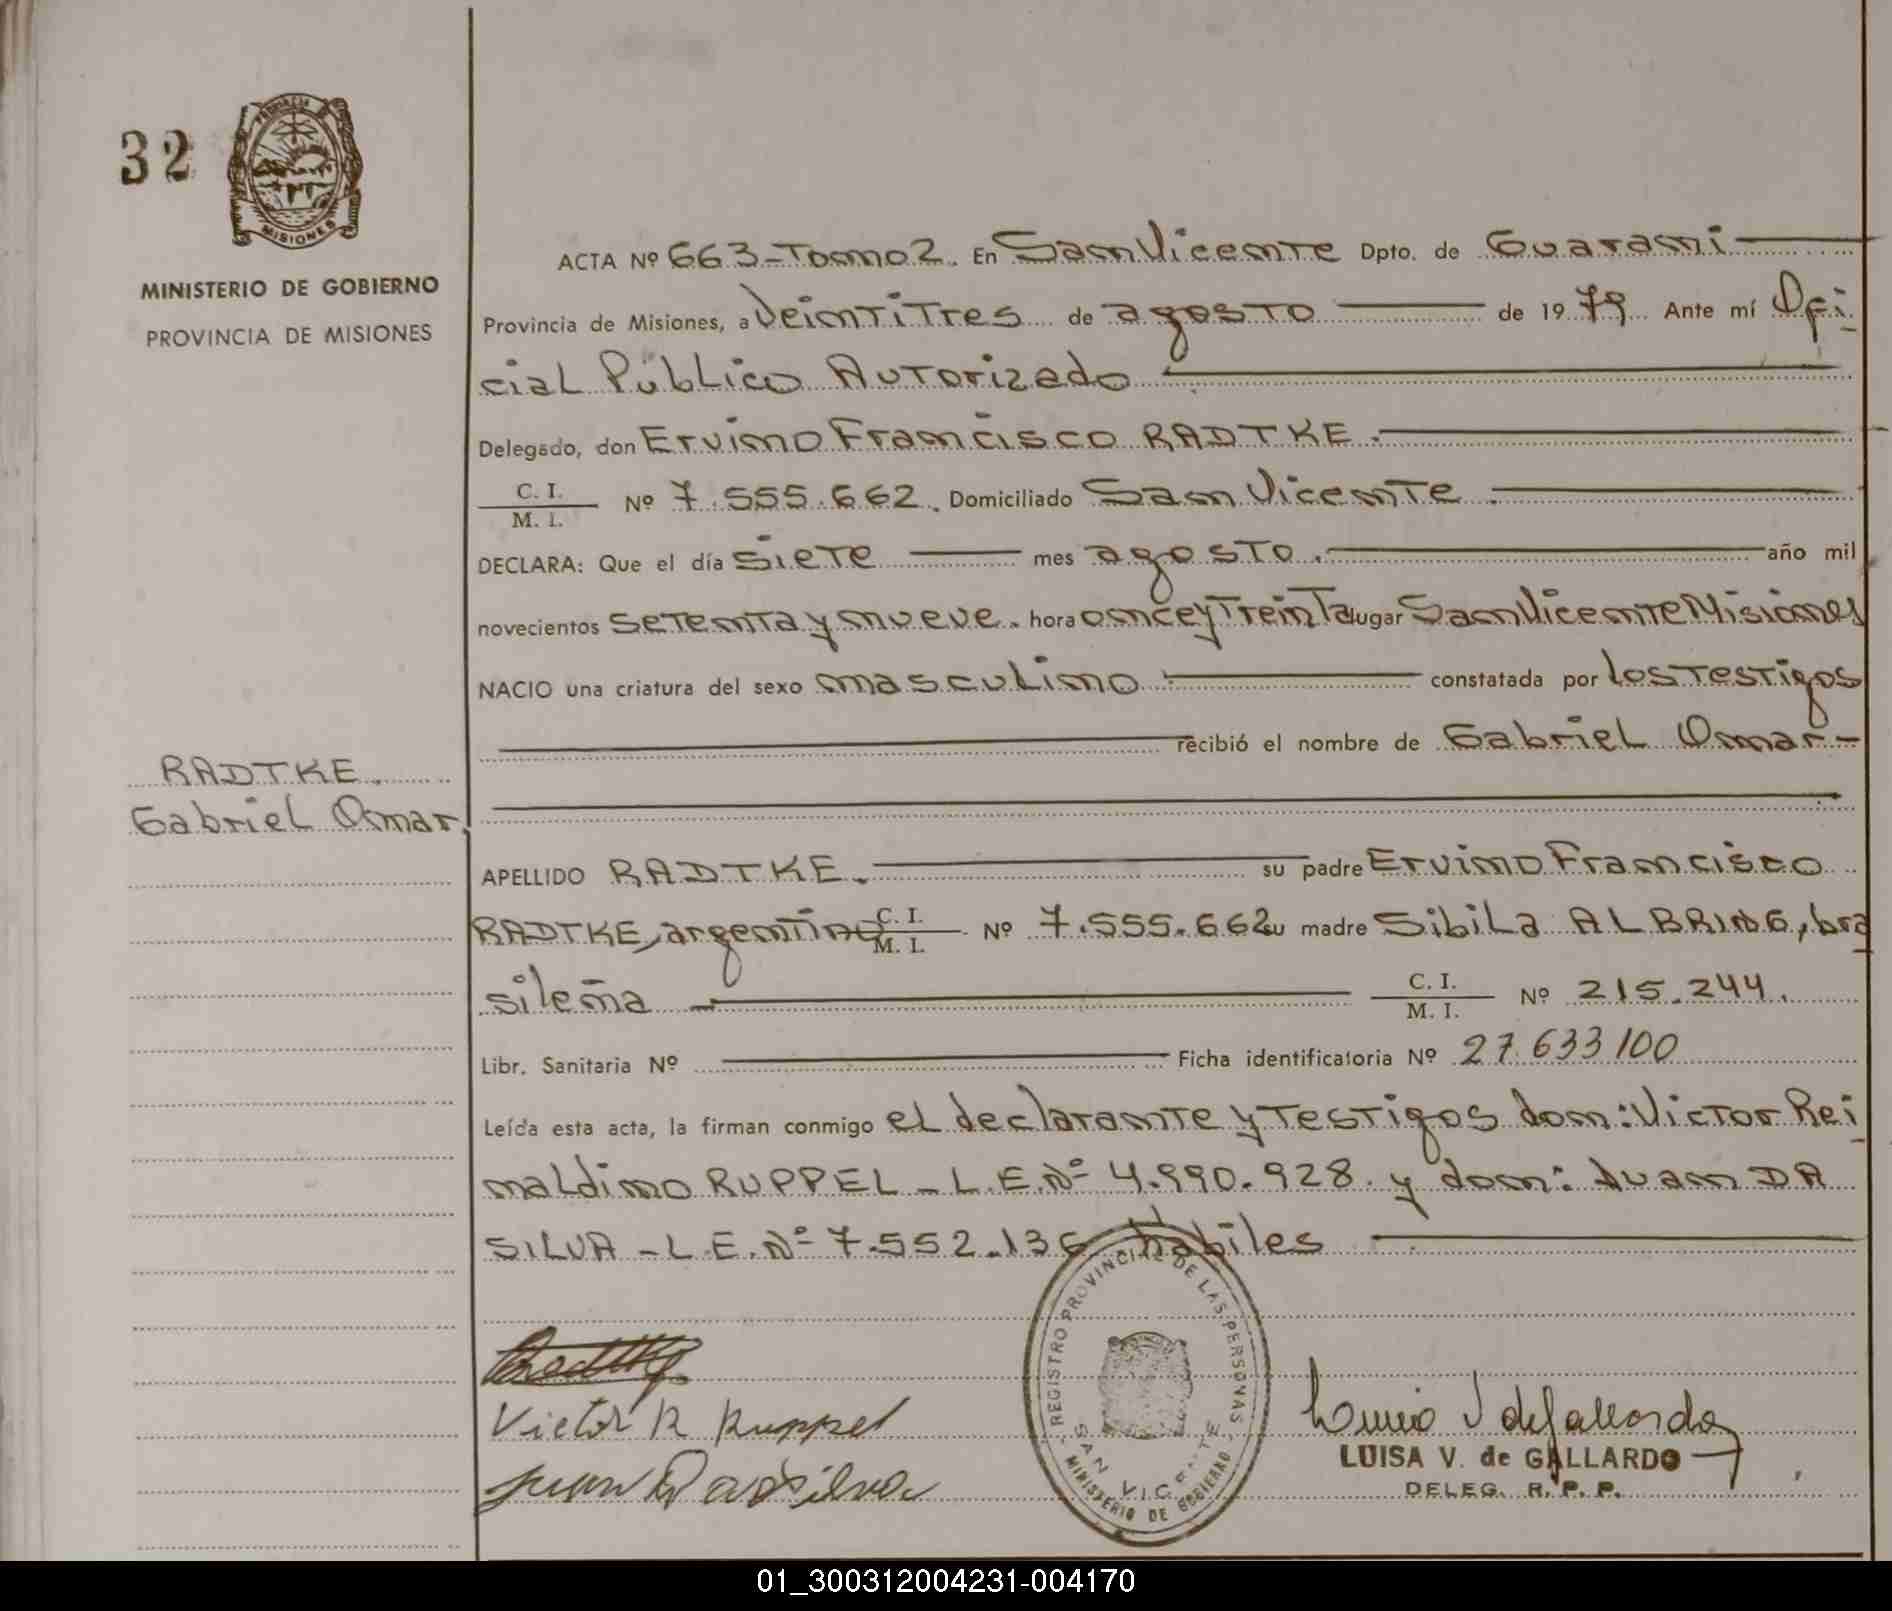 32
PROVINCIA
MISIONES
MINISTERIO DE GOBIERNO
PROVINCIA DE MISIONES
RADTKE.
Gabriel Omar.
ACTA Nº 663-Tomo 2. En San Vicente Dpto. de Guaraní
Provincia de Misiones, a Veintitres de agosto de 1979 Ante mí Ofi
cial Público Autorizado
Delegado, don Ervino Francisco RADTKE.
C. I.
M. I. Nº 7.555.662. Domiciliado San Vicente.
DECLARA: Que el día siete mes agosto. año mil
novecientos setenta y nueve. hora once y treinta lugar San Vicente Misiones
NACIO una criatura del sexo masculino constatada por los testigos
recibió el nombre de Gabriel Omar-
APELLIDO RADTKE. su padre Ervino Francisco
RADTKE, argentino C. I.
M. I. Nº 7.555.662 su madre Sibila ALBRING, bra
sileña C. I.
M. I. Nº 215.244.
Libr. Sanitaria Nº Ficha identificatoria Nº 27.633100
Leída esta acta, la firman conmigo el declarante y testigos don: Victor Rei
naldino RUPPEL - L.E.Nº 4.990.928. y don: Juan DA
SILVA - L.E.Nº 7.552.136 hábiles
Radtke
Victor R Ruppel
Juan Da Silva
REGISTRO PROVINCIAL DE LAS PERSONAS
SAN VICENTE
MINISTERIO DE GOBIERNO
LUISA V. de GALLARDO
DELEG. R. P. P.
01_300312004231-004170